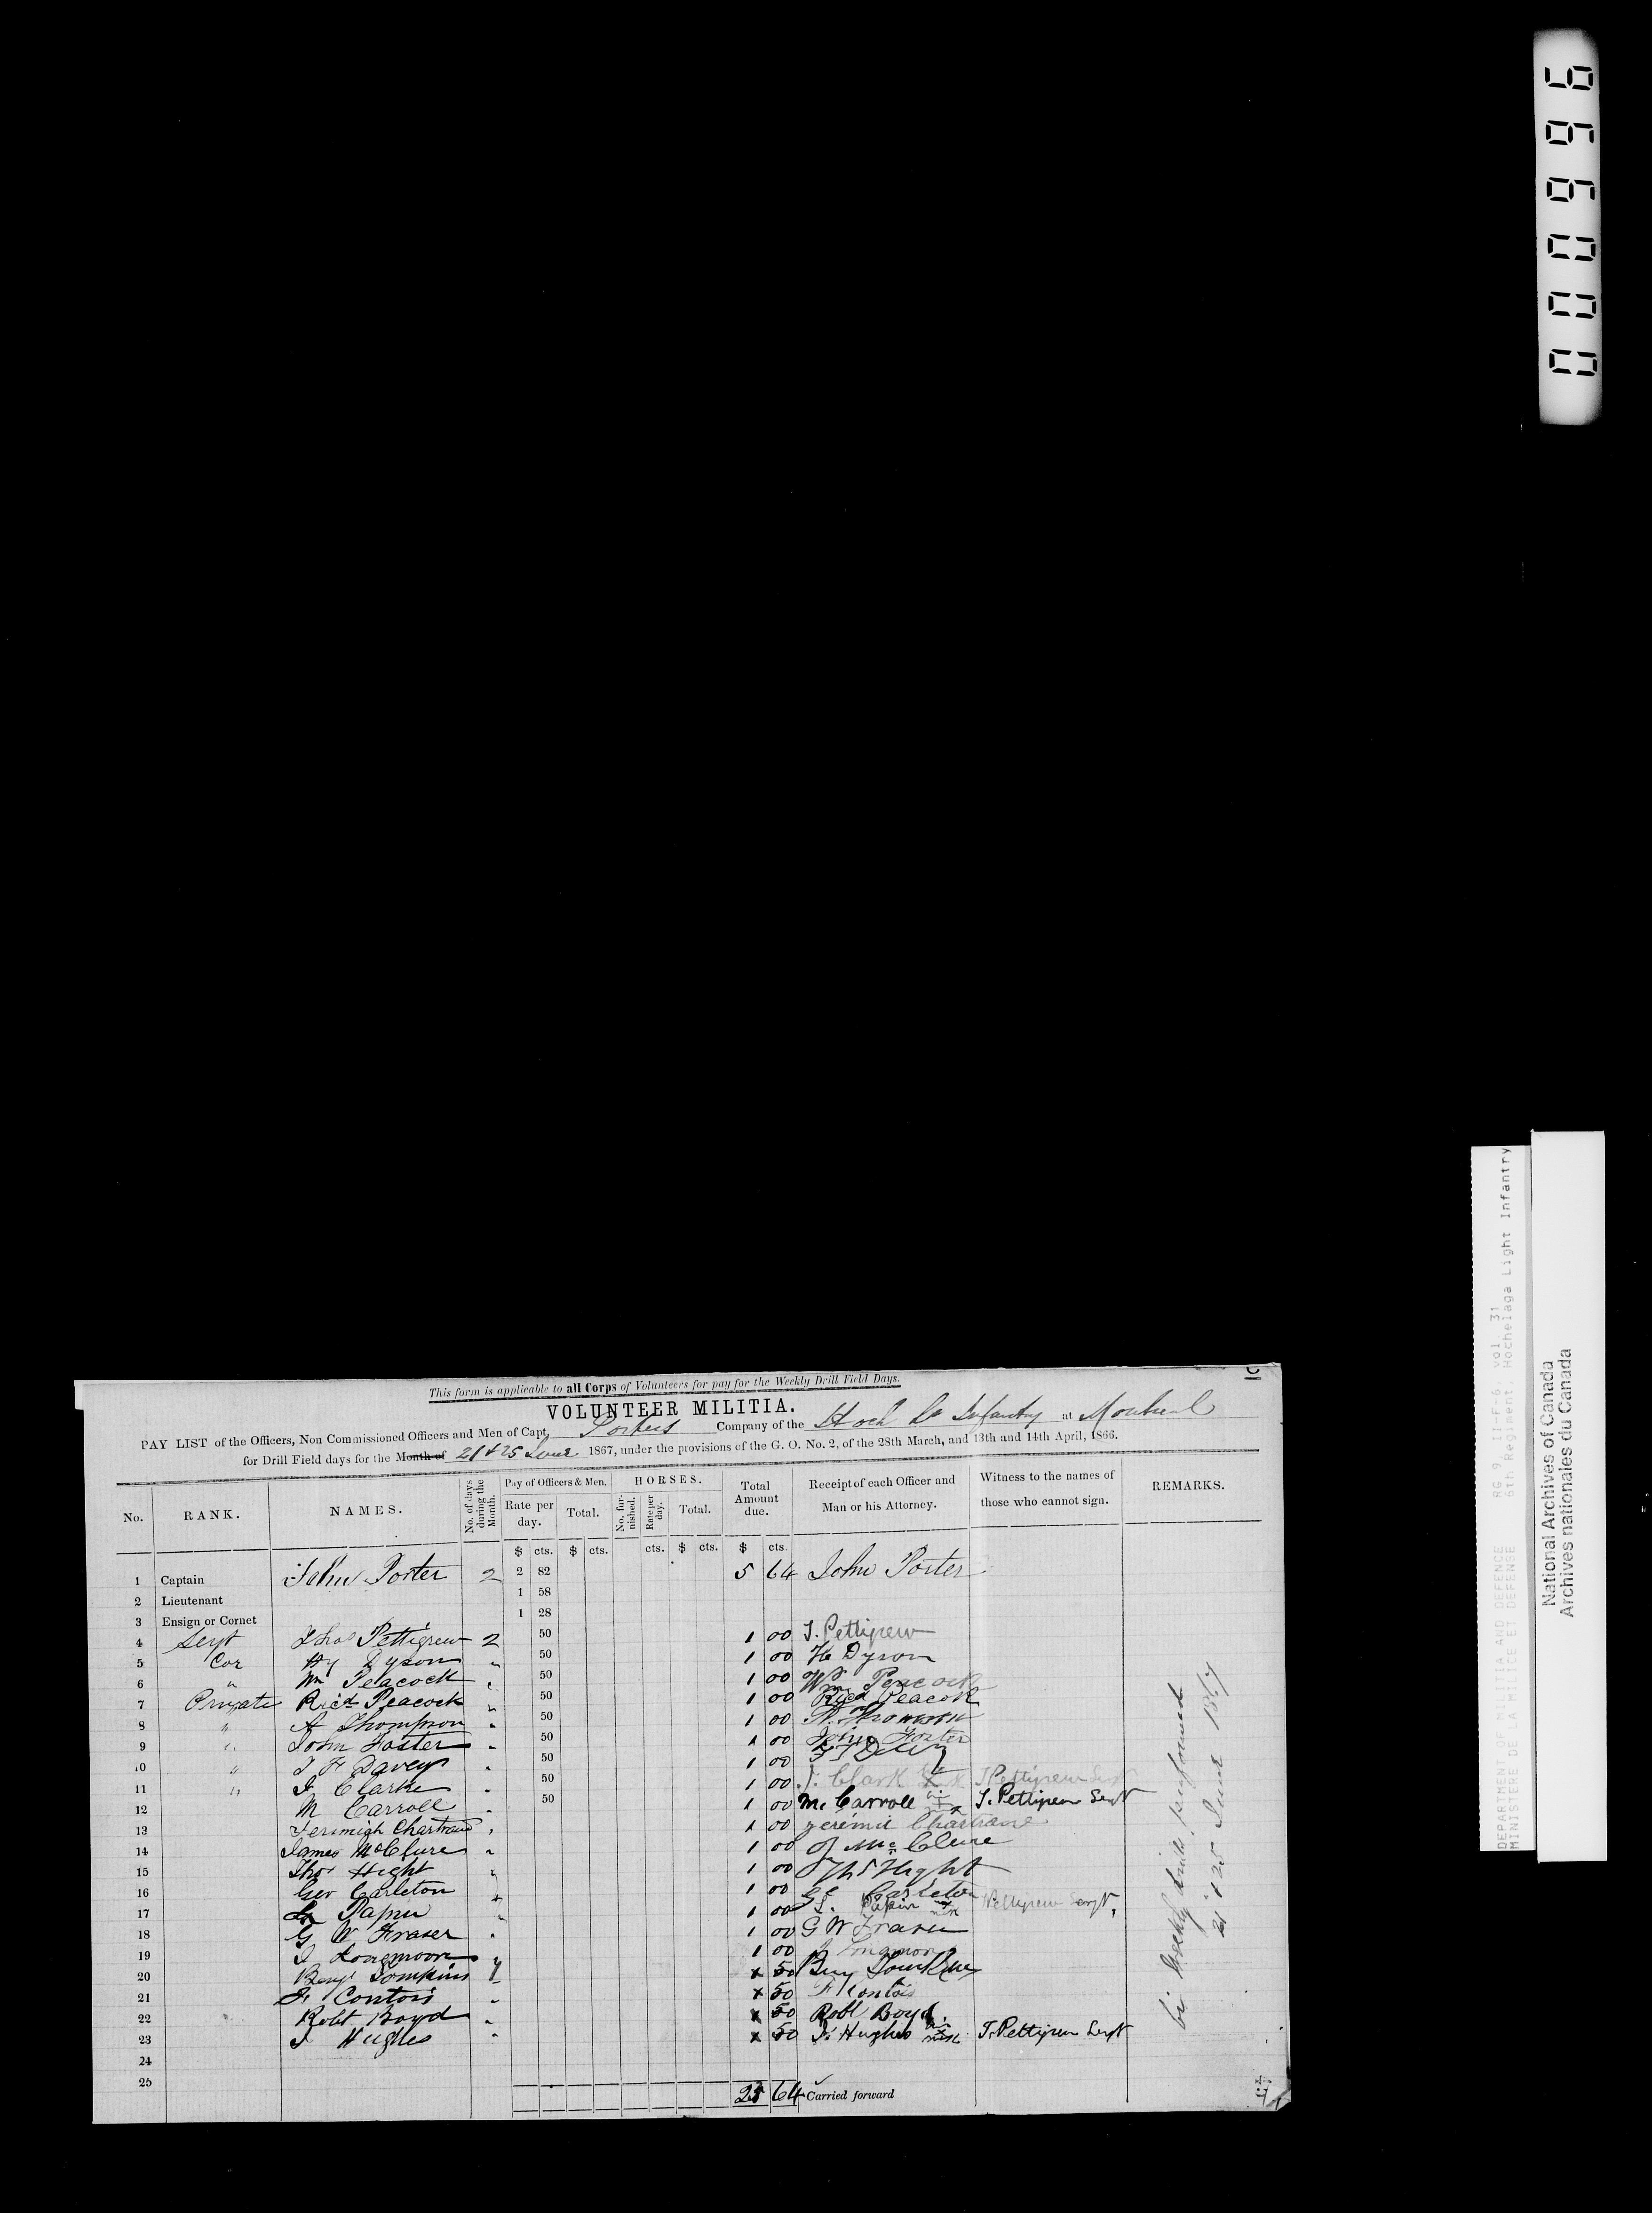 000996
This form is applicable to all Corps of Volunteers for pay for the Weekly Drill Field Days.
VOLUNTEER MILITIA.
PAY LIST of the Officers, Non Commissioned Officers and Men of Capt. Porters Company of the Hoch Lt Infantry at Montreal
for Drill Field days for the Month of 21 & 25 June 1867, under the provisions of the G. O. No. 2, of the 28th March, and 13th and 14th April, 1866.
No. RANK. NAMES. No. of days during the Month. Pay of Officers & Men. Rate per day. Total. HORSES. No. furnished. Rate per day. Total. Total Amount due. Receipt of each Officer and Man or his Attorney. Witness to the names of those who cannot sign. REMARKS.
$ cts. $ cts. cts. $ cts. $ cts.
1 Captain John Porter 2 2 82 5 64 John Porter
2 Lieutenant 1 58
3 Ensign or Cornet 1 28
4 Sergt Thos Pettigrew 2 50 1 00 T. Pettigrew
5 Cor Hy Dyson " 50 1 00 H Dyson
6 " Wm Peacock " 50 1 00 Wm Peacock
7 Private Ricd Peacock " 50 1 00 Ricd Peacock
8 " A Thompson " 50 1 00 A. Thompson
9 " John Foster " 50 1 00 John Foster
10 " T F Davey " 50 1 00
11 " J Clarke " 50 1 00 J. Clark X T Pettigrew Sergt
12 M Carroll " 50 1 00 M. Carroll X T. Pettigrew Sergt
13 Jerimigh Chartrand " 1 00 Jerémie Chartrand
14 James McClure " 1 00 J McClure
15 Thos Hight " 1 00 Ths Hight
16 Geo Carleton " 1 00 Go Carleton
17 Papin " 1 00 Papin T Pettigrew Sergt,
18 G W Fraser " 1 00 G W Fraser
19 J Longmoore " 1 00 J Longmoor
20 Benj Tompkins 1 50 Benj Tompkins
21 F Contois " 50 F Contois
22 Robt Boyd " 50 Robt Boyd
23 J Hughes " 50 J. Hughes T. Pettigrew Sergt
24
25
25 64 Carried forward
bi weekly drills performed
21 & 25 June 1867
DEPARTMENT OF MILITIA AND DEFENCE RG 9, II-F-6, vol. 31
MINISTERE DE LA MILICE ET DEFENSE 6th Regiment, Hochelaga Light Infantry
National Archives of Canada
Archives nationales du Canada